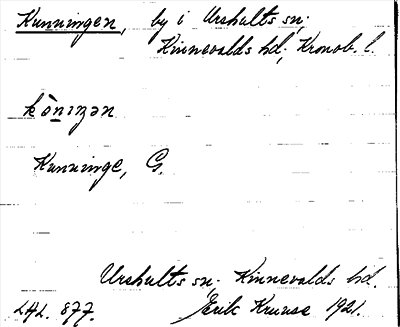 Kunningen, by i Urshults sn;
Kinnevalds hd; Kronob. l.
Kunninge, G.
Urshults sn; Kinnevalds hd.
Erik Kruuse 1921.